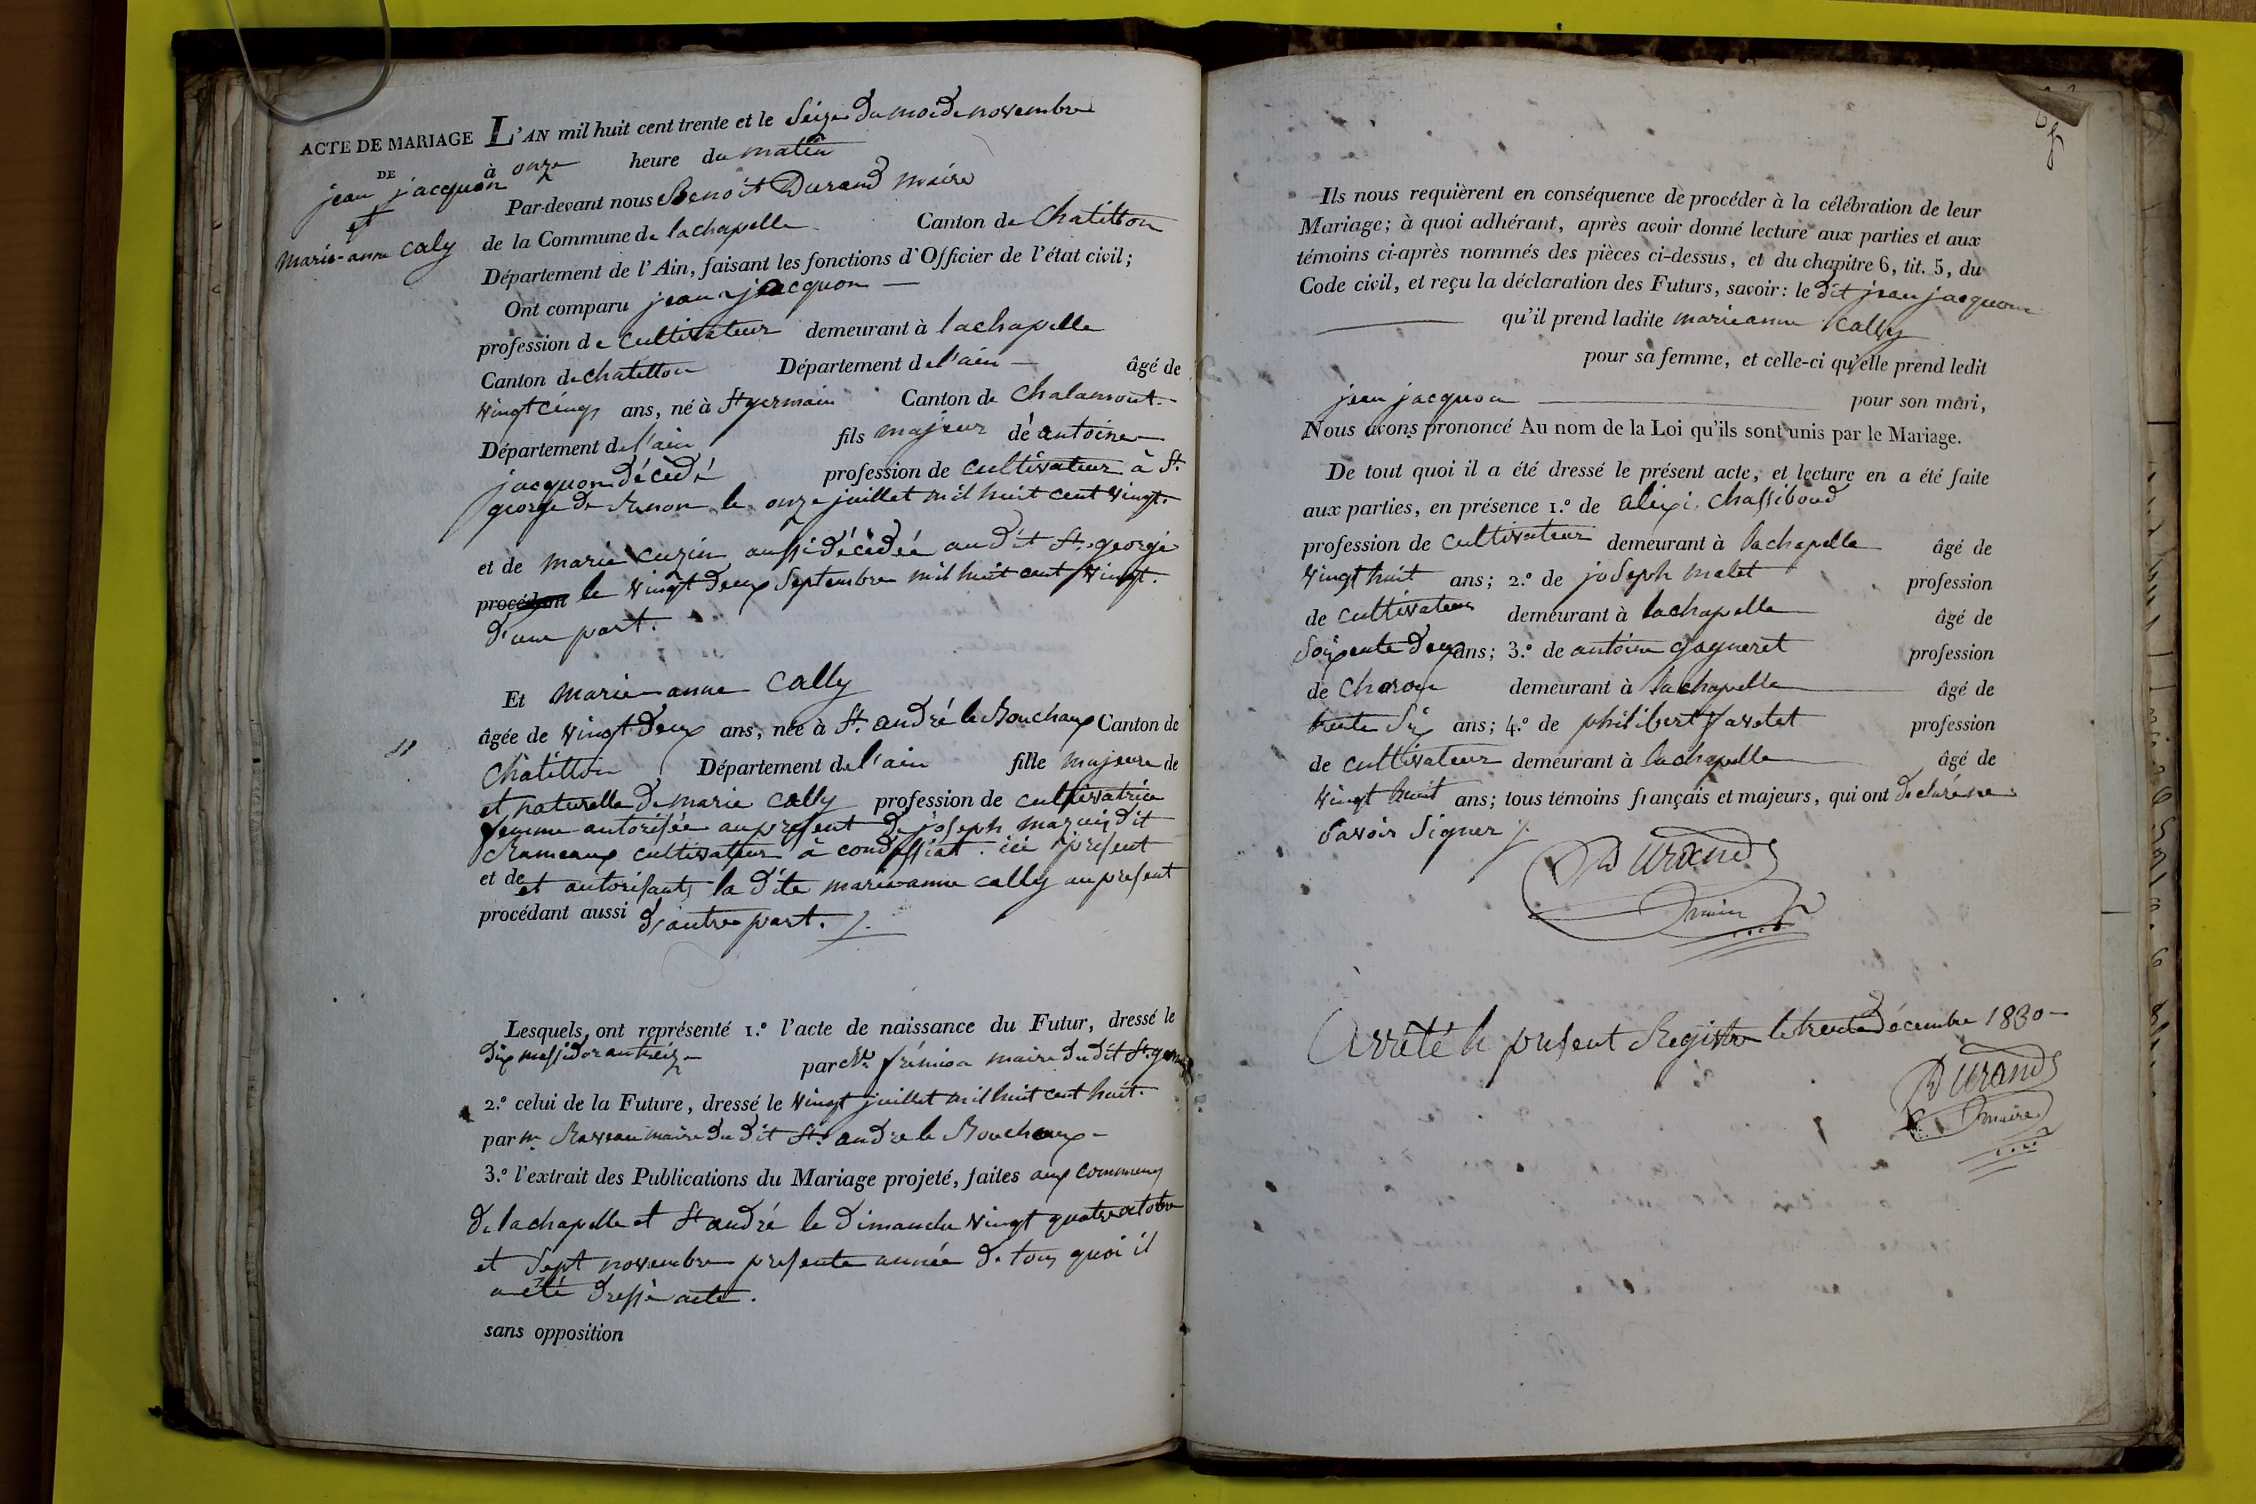 ACTE DE MARIAGE
DE
jean jacquon
et
marie-anne caly
L'AN mil huit cent trente et le Seize du moi de novembre
à onze heure du matin
Par-devant nous Benoit Durand maire
de la Commune de lachapelle Canton de Chatillon
Département de l'Ain, faisant les fonctions d'Officier de l'état civil;
Ont comparu jean jacquon
profession de cultivateur demeurant à lachapelle
Canton de chatillon Département de l'ain âgé de
vingt cinq ans, né à St germain Canton de Chalamont
Département de l'ain fils majeur de antoine
jacquon décèdé profession de cultivateur à St
george de Renon le onze juillet mil huit cent vingt.
et de marie cuzin aussi décèdée au dit St george
procédant le vingt deux Septembre mil huit cent vingt.
d'une part.
Et marie anne Cally
âgée de vingt deux ans, née à St andré le Bouchoux Canton de
Chatillon Département de l'ain fille majeure de
et naturelle de marie Cally profession de cultivatrice
femme autorisée au présent de joseph dit
Rameaux cultivateur à condessiat ici présent
et de et autorisant la dite marie anne cally au présent
procédant aussi d'autre part.
Lesquels ont représenté 1.º l'acte de naissance du Futur, dressé le
dix messidor an treize par frémion maire du dit St germain
2.º celui de la Future, dressé le vingt juillet mil huit cent huit.
par mr Raveau maire du dit St andré le Bouchoux
3.º l'extrait des Publications du Mariage projeté, faites aux communes
de lachapelle et St andré le dimanche vingt quatre octobre
et Sept novembre présente année de tous quoi il
a été dressé acte.
sans opposition
Ils nous requièrent en conséquence de procéder à la célébration de leur
Mariage; à quoi adhérant, après avoir donné lecture aux parties et aux
témoins ci-après nommés des pièces ci-dessus, et du chapitre 6, tit. 5, du
Code civil, et reçu la déclaration des Futurs, savoir: le dit jean jacquon
qu'il prend ladite marie anne Cally
pour sa femme, et celle-ci qu'elle prend ledit
jean jacquon pour son mari,
Nous avons prononcé Au nom de la Loi qu'ils sont unis par le Mariage.
De tout quoi il a été dressé le présent acte, et lecture en a été faite
aux parties, en présence 1.º de alexi Chassiboud
profession de cultivateur demeurant à lachapelle âgé de
vingt huit ans; 2.º de joseph malet profession
de cultivateur demeurant à lachapelle âgé de
soixente deux ans; 3.º de antoine gagneret profession
de Charon demeurant à lachapelle âgé de
trente Six ans; 4.º de philibert favetet profession
de cultivateur demeurant à lachapelle âgé de
vingt huit ans; tous témoins français et majeurs, qui ont declaré ne
savoir signer
Durand
maire
Arrêté le présent Registre le trente décembre 1830
Durand
maire